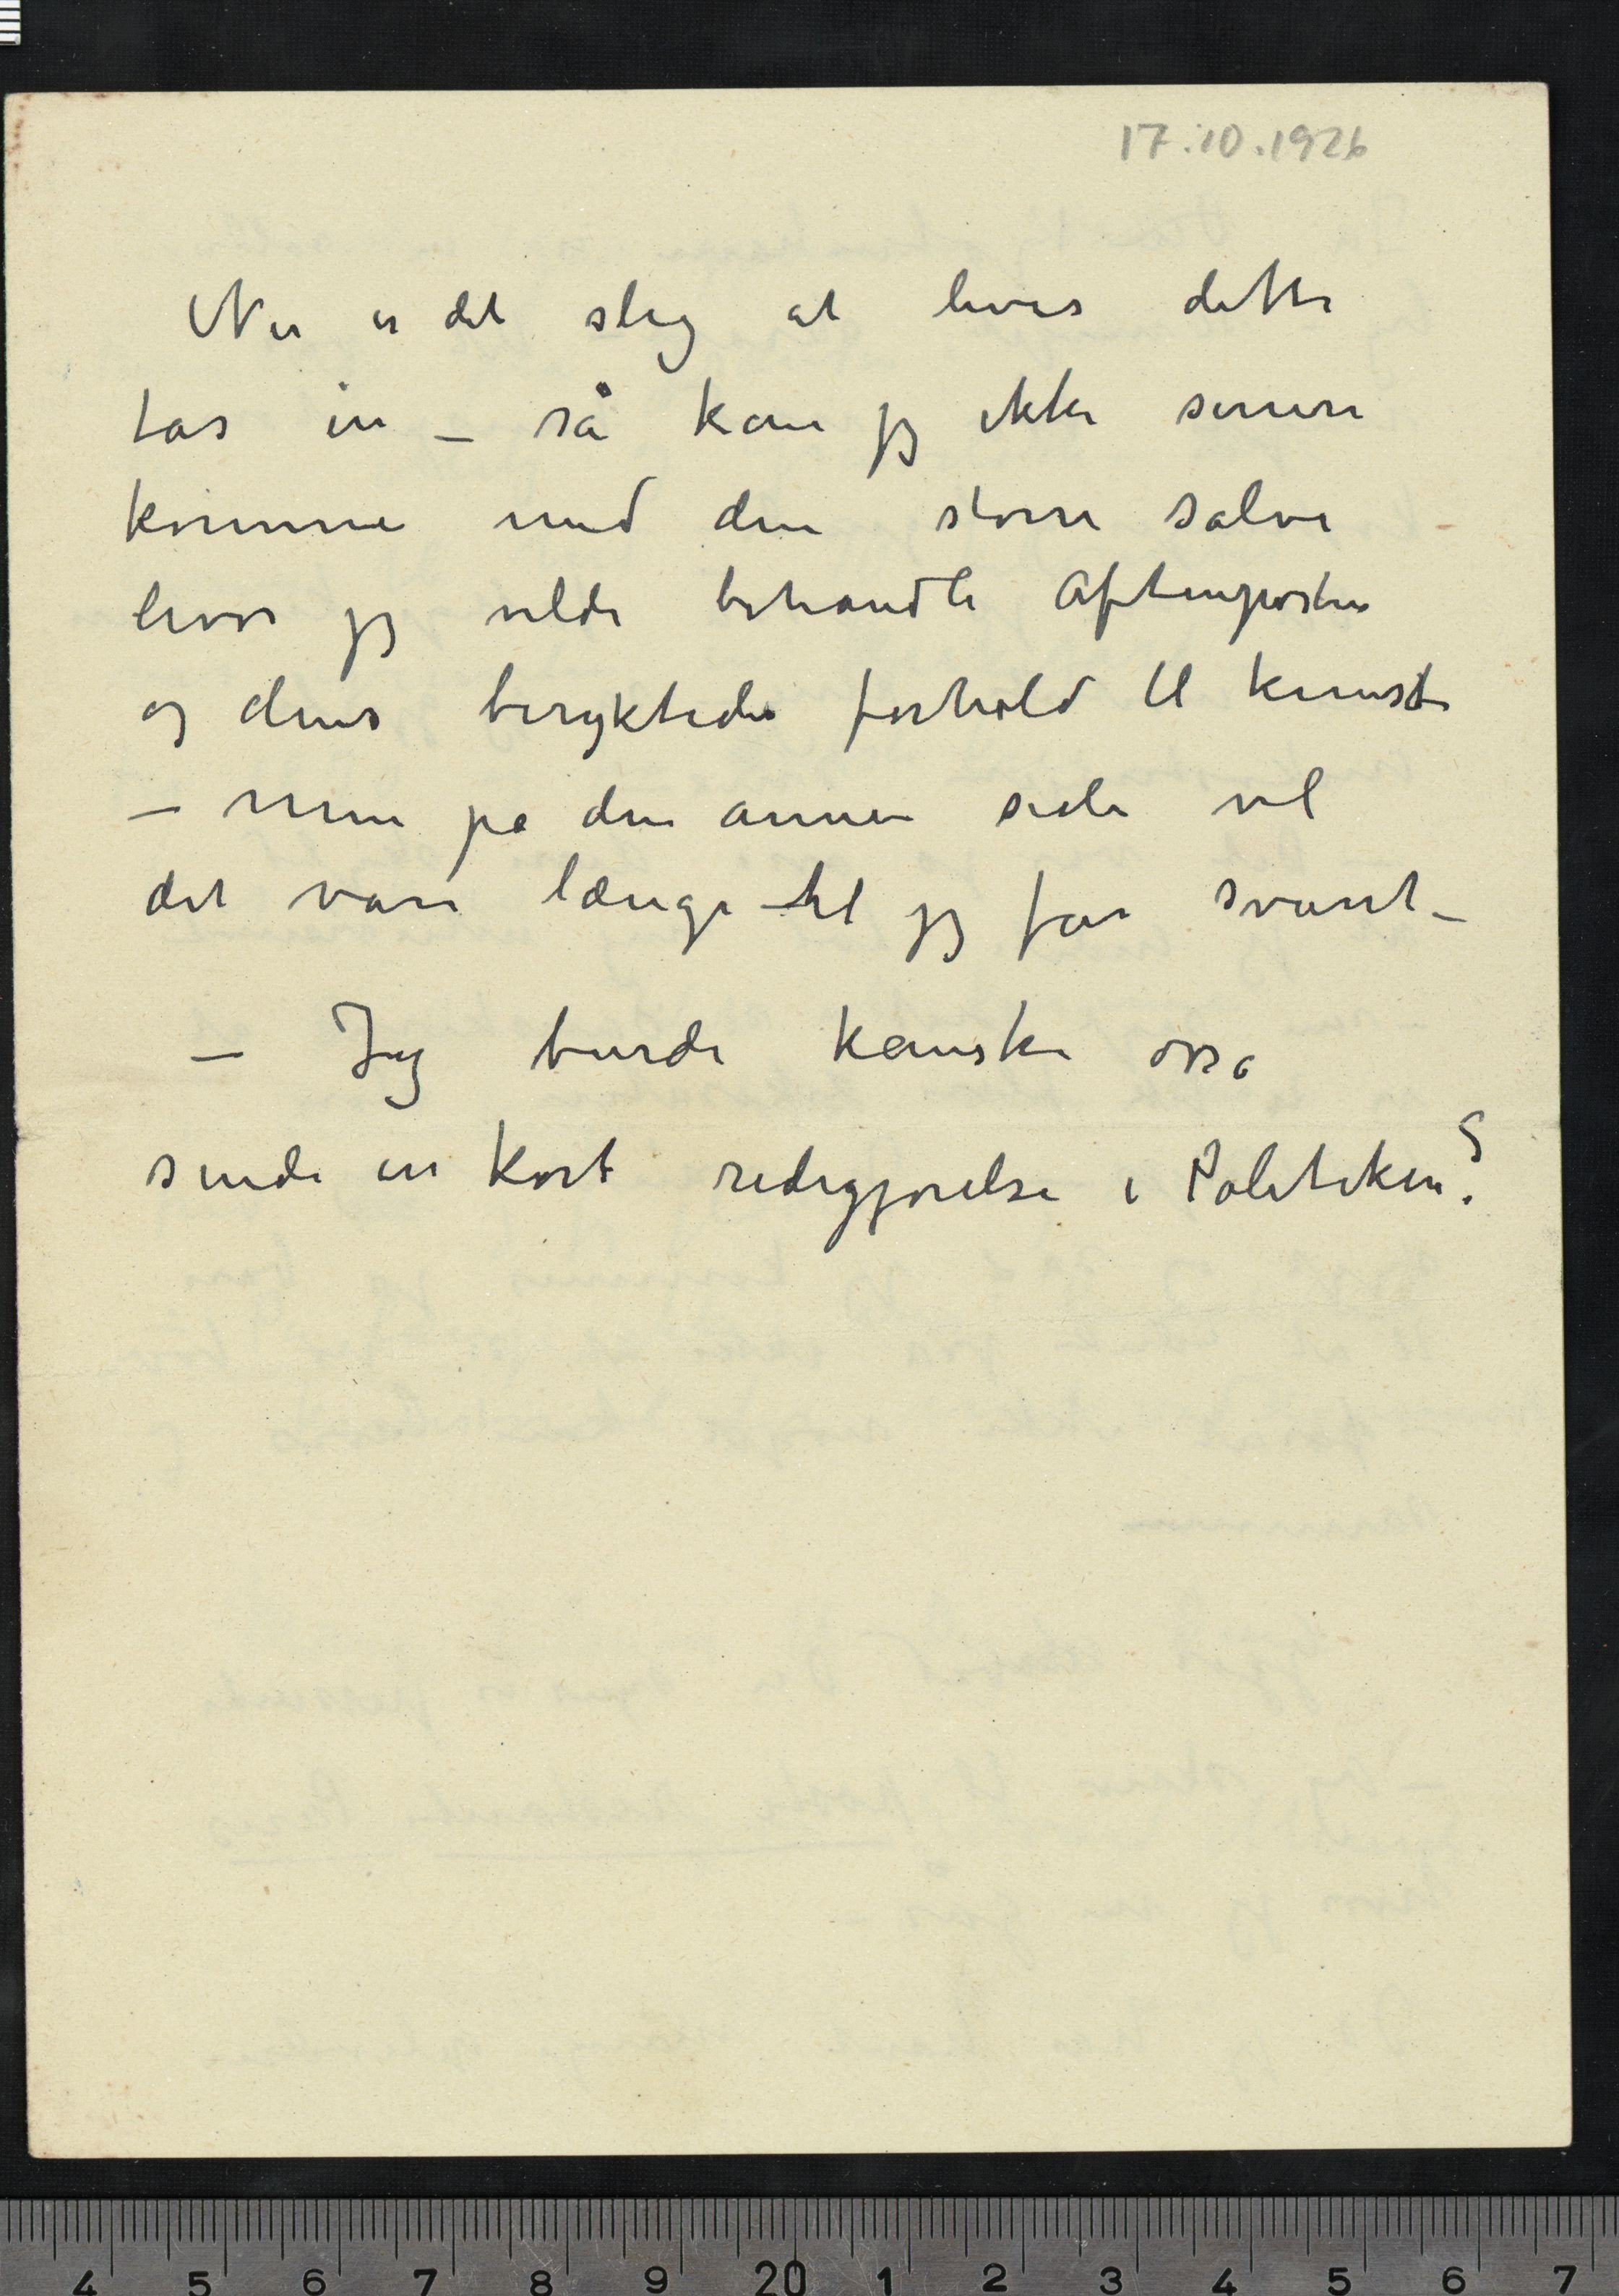 17.10.1926
Nu er det slig at hvis dette
tas in – så kan jeg ikke senere
komme med den større salve
hvor jeg vilde behandle Aftenposten
og dens beryktede forhold til kunst
– men på den annen side vil
det vare længe til jeg får svaret –
– Jeg burde kanske osså
sende en kort redegjørelse i Politiken?
4 5 6 7 8 9 20 1 2 3 4 5 6 7